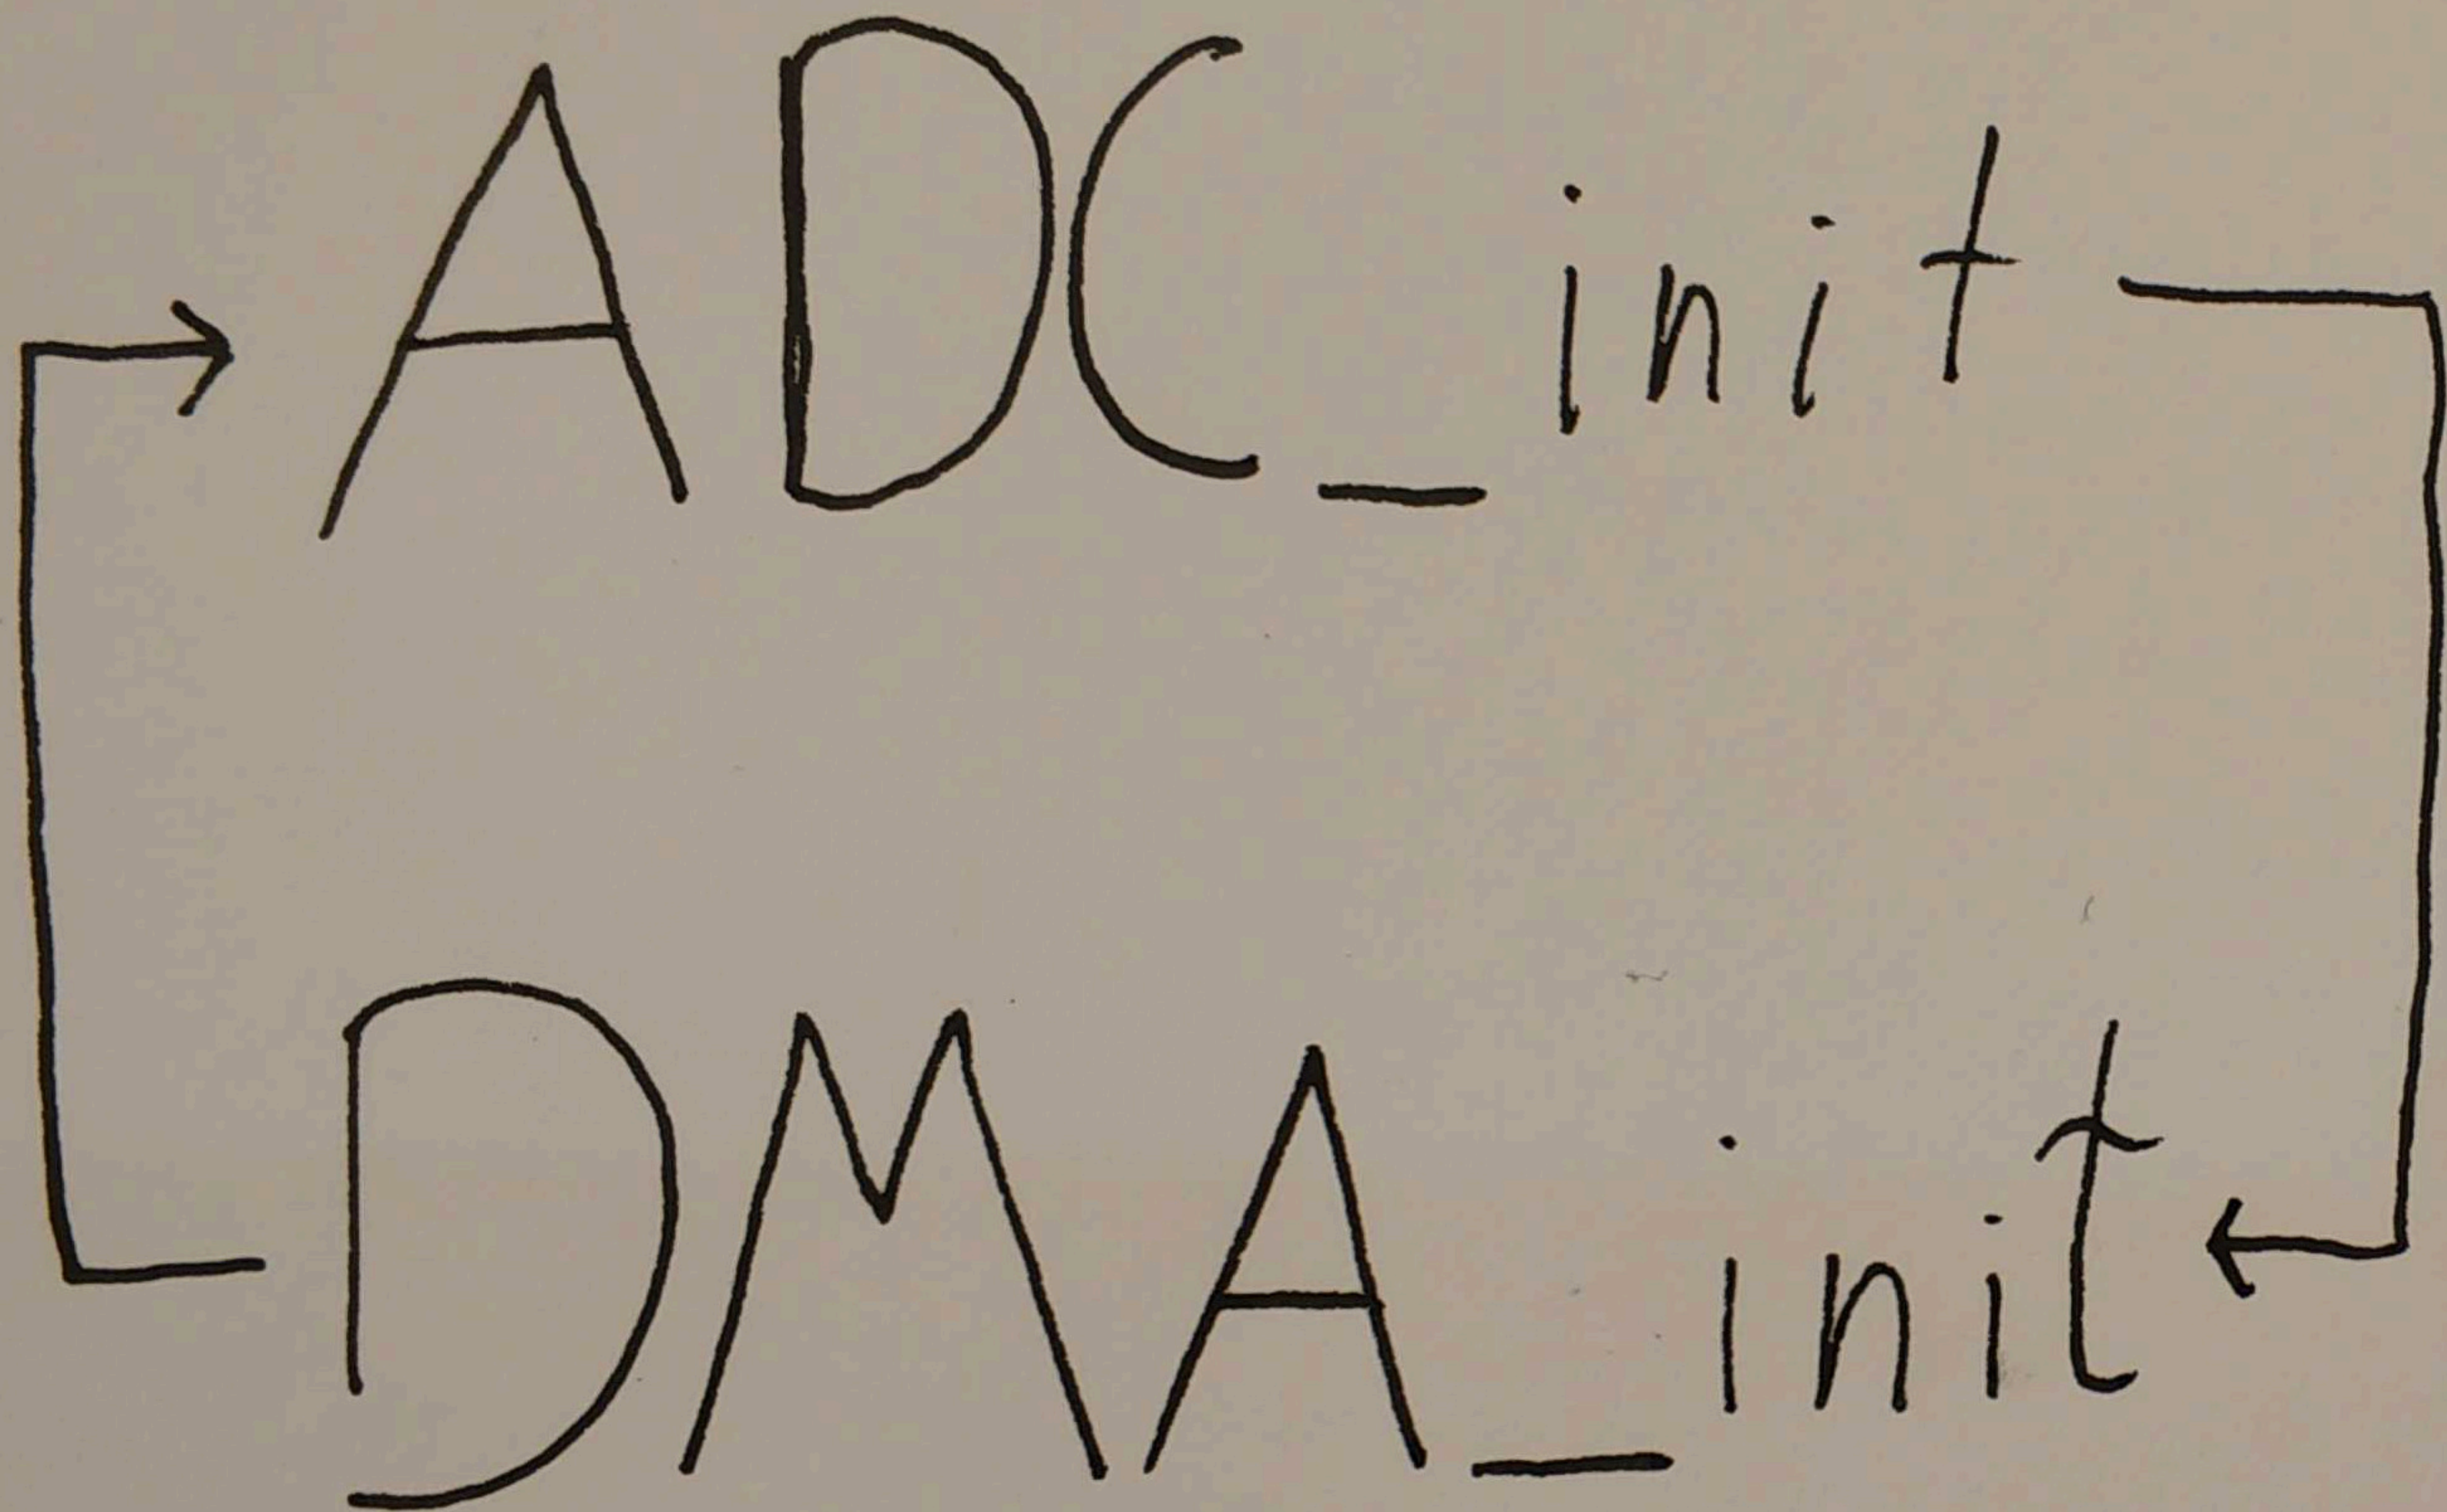 ADC_init
DMA_init